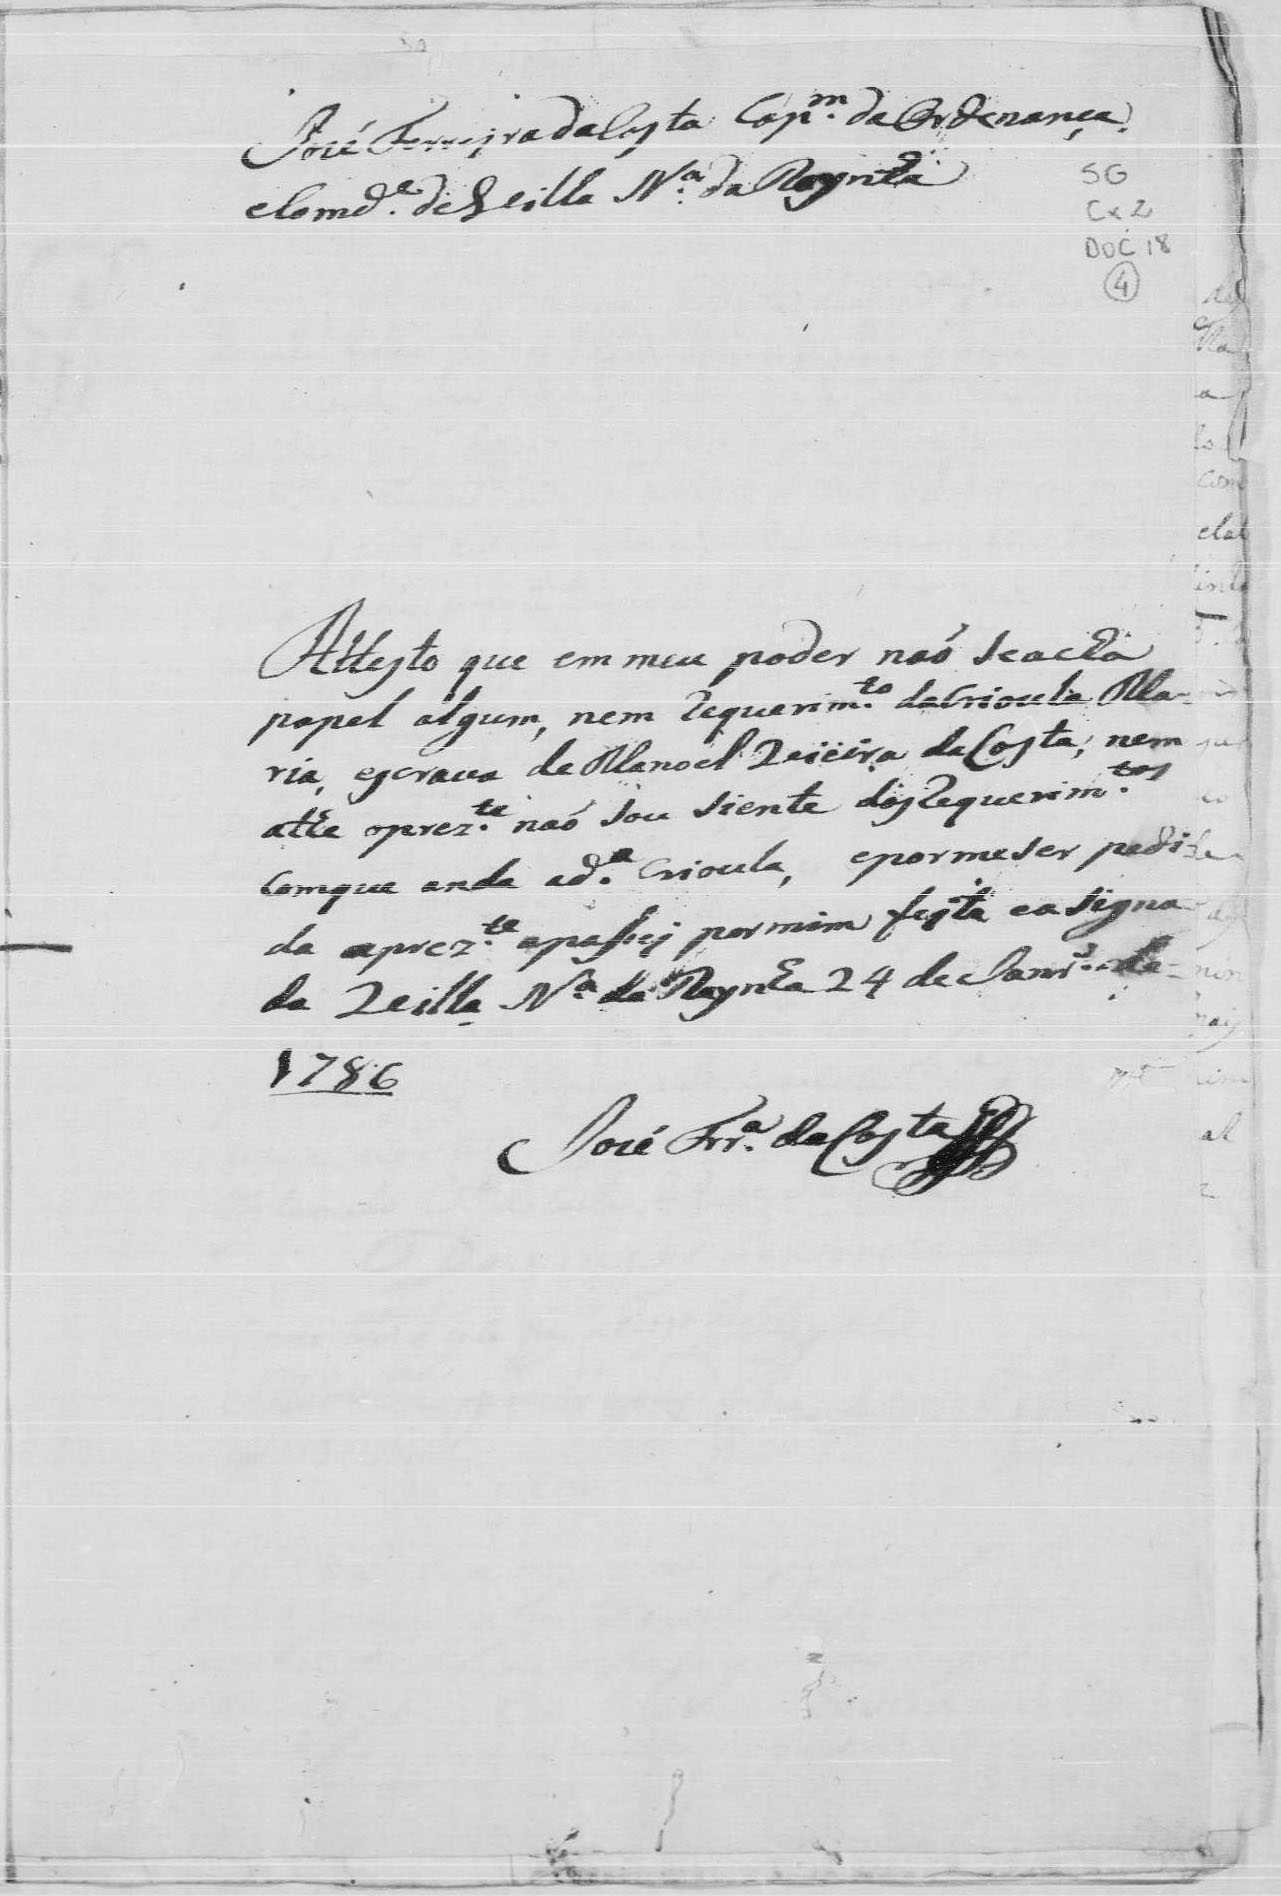 José Ferreira da Costa Capm. da Ordenança,
e Comde. de Villa Na. da Raynha
SG
Cx 2
DOC 18
4
Attesto que em meu poder naõ se acha
papel algum, nem Requerimto. da Crioula Ma-
ria, escrava de Manoel da Costa, nem
athe o prezte. naõ sou siente dos Requerimtos.
com que anda a da. Crioula, e por me ser pedi-
da a prezte. a passei por mim feita e a signa-
da Villa Na. da Raynha 24 de Janro. de
1786
José Frra. da Costa